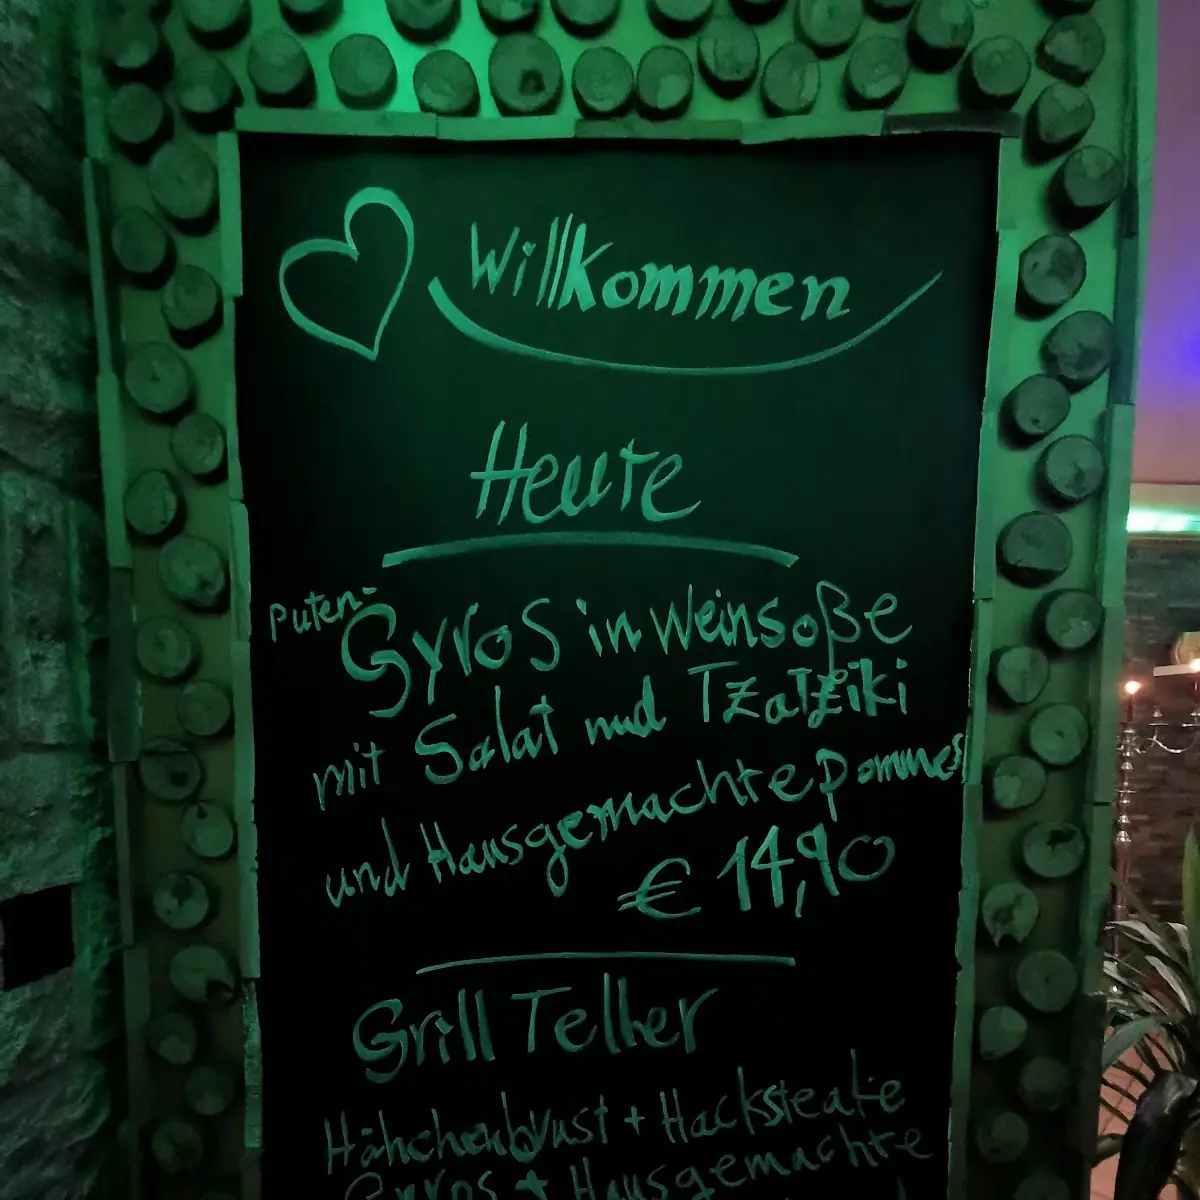 Willkommen
Heute
Puten-
Gyros in Weinsoße
mit Salat und Tzatziki
und Hausgemachte Pommes
€ 14,90
Grill Teller
Hähchenbrust + Hacksteake
Gyros + Hausgemachte